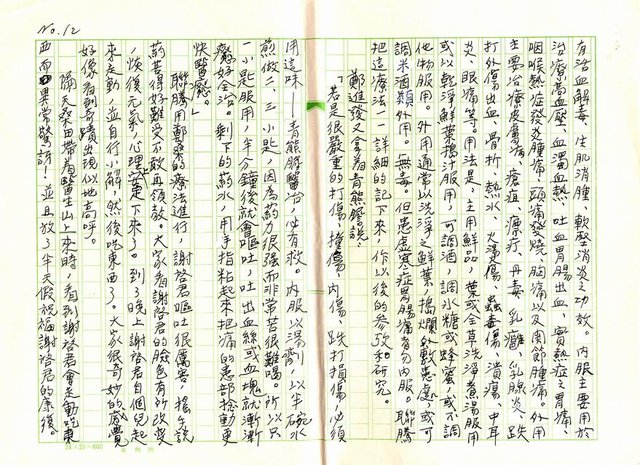 No.12
有活血解毒、生肌消腫、軟堅消炎之功效。內服主要用於
治療高血壓、血濁血熱、吐血胃腸出血、實熱症之胃痛、
咽喉熱症發炎腫痛、頭痛發燒、胸痛以及關節腫痛。外用
主要治療皮膚病、瘡疽、瘰癧、丹毒、乳癰、乳腺炎、跌
打外傷出血、骨折、熱水、火燙傷、蟲毒傷、潰瘍、中耳
炎、眼痛等。用法是，主用鮮品，葉或全草洗淨煮湯服用
或以乾淨鮮葉搗汁服用，可調酒，調水糖或蜂蜜，或不調
他物服用。外用通常以洗淨之鮮葉，搗爛外敷患處或可
調米酒類外用。無毒。但患虛寒症胃腸痛者勿內服。聯騰
把這療法一一詳細的記下來，作以後的參攷和研究。
鄭進發又拿著青熊膽說：
「若是很嚴重的打傷、撞傷、內傷、跌打損傷，必須
用這味──青熊膽醫治，必有救。內服以湯劑，以半碗水
煎做二、三小匙，因為藥力很强而非常苦很難喝。所以只
一小匙服用，半分鐘後就會嘔吐，吐出血絲或血塊就漸漸
癒好全治。剩下的藥水，用手指粘起來把痛的患部捻動更
快醫癒。」
聯騰用鄭樂的療法進行，謝啓君嘔吐很厲害，搖手說
葯苦得好難受不敢再領教。大家看謝啓君的臉色有所改變
，恢復元氣，心理安定下來了。到了晚上謝啓君自個兒起
來走動，並自行小解，然後吃東西了。大家很奇妙的感覺
好像看到奇蹟出現似地高呼。
隔天桑田帶著醫生山上來時，看到謝啓君會走動吃東
西而異常驚訝！並且放了半天假祝福謝啓君的康復。
24×25=600